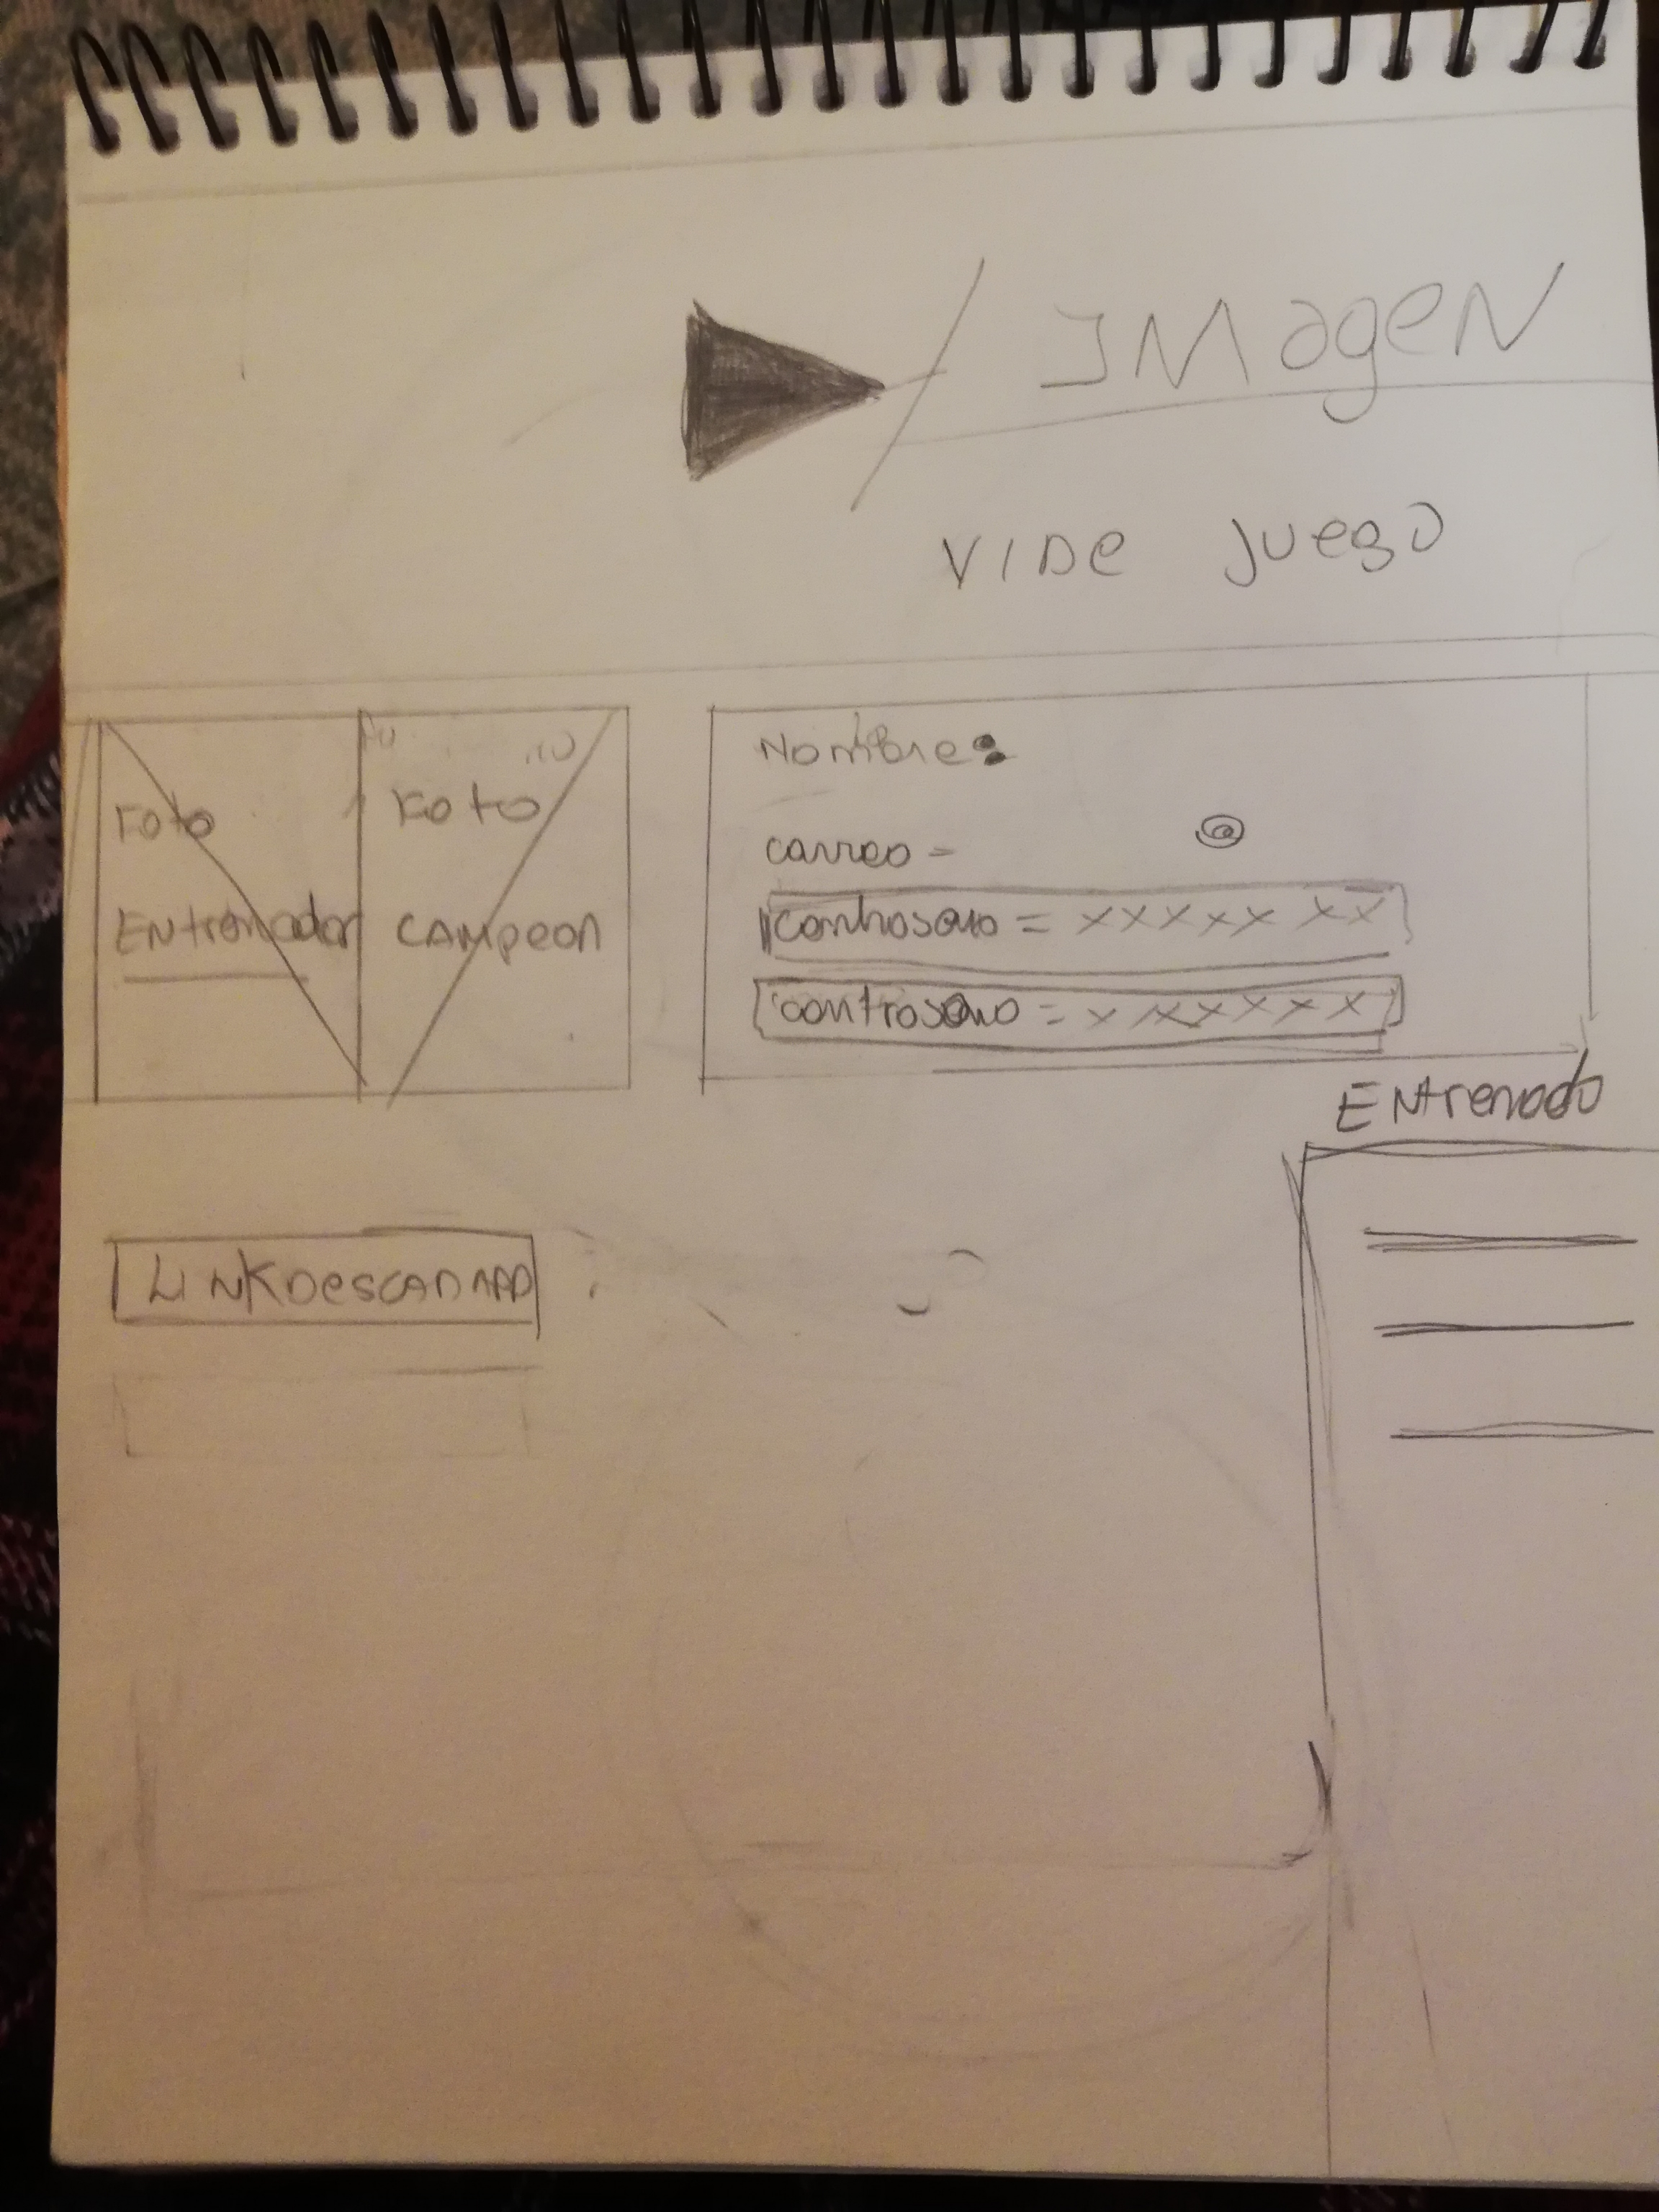 IMagen
VIDe juego
Foto
Entrenador
Foto
CAMpeon
Nombre:
correo =
@
contraseño = xxxxx xx
contraseño = x xxxxxx
Entrenado